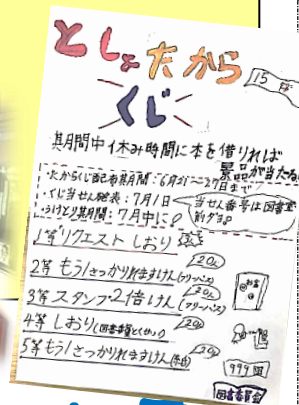 としょたから
くじ
其月間中休み時間に本を借りれば
景品が当たる
・たからくじ配布其月間:6月21~27日まで
・くじ当せん発表:7月1日
・うけとり其月間:7月中に!
当せん番号は図書室
前かも
1等リクエストしおり
2等もう1さっかりれますけん(フリーパス)
20人
3等スタンプ2倍けん(フリーパス)
20人
4等しおり(図書委員とくせい)
20人
5等もう1さっかりれますけん(1回)
20人
999冊
図書委員会